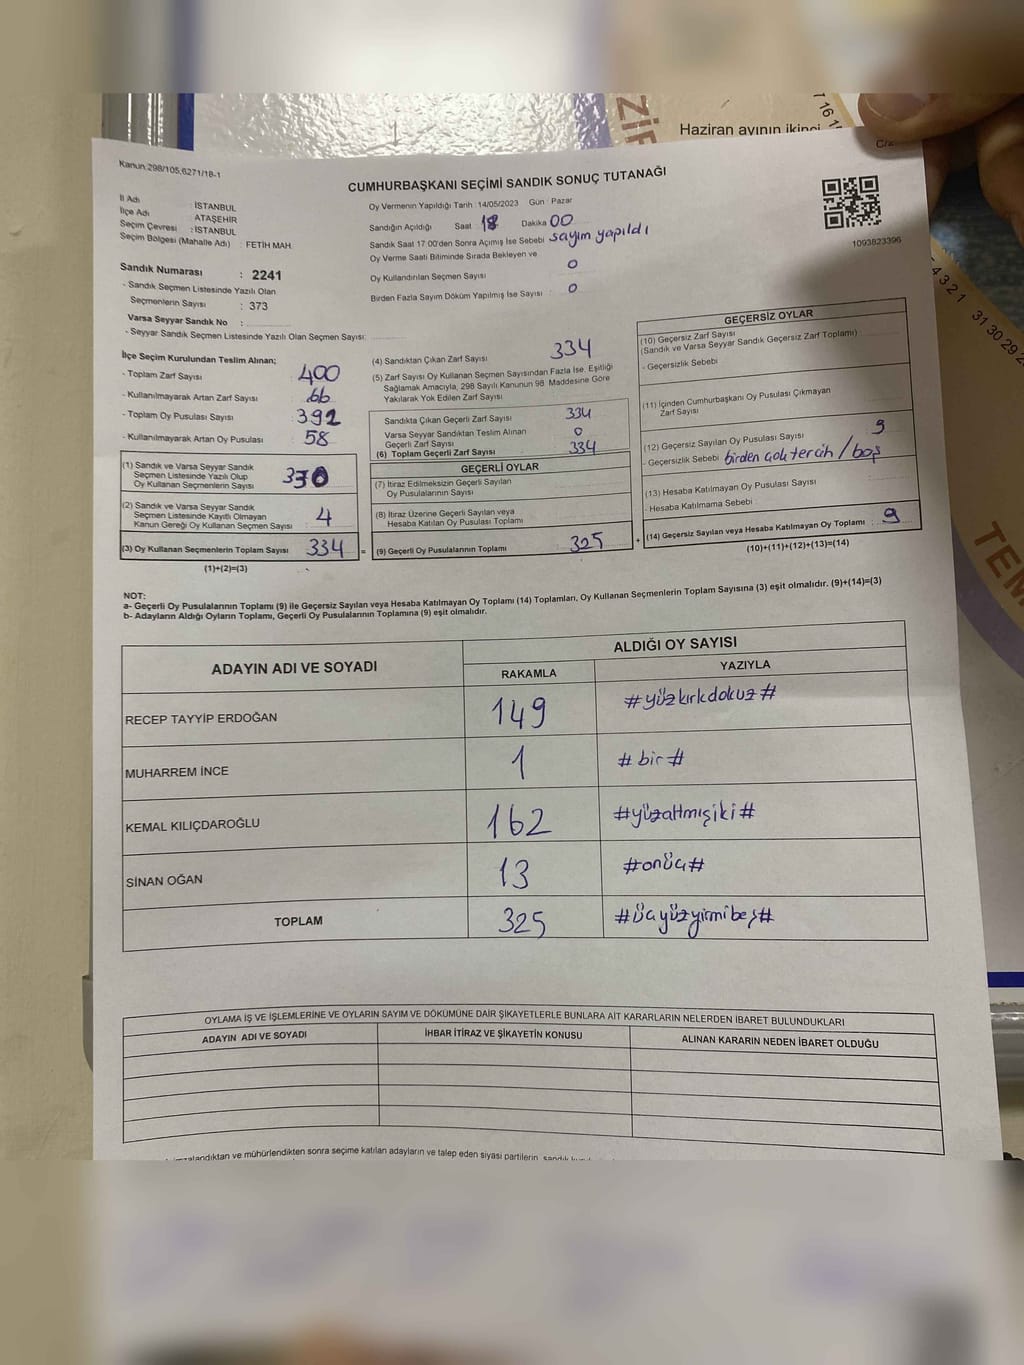 ZİF
7 16 1
Haziran ayının ikinci
C/2
Kanun:298/105,6271/18-1
CUMHURBAŞKANI SEÇİMİ SANDIK SONUÇ TUTANAĞI
İl Adı : İSTANBUL
İlçe Adı : ATAŞEHİR
Seçim Çevresi : İSTANBUL
Seçim Bölgesi (Mahalle Adı) : FETİH MAH.
Oy Vermenin Yapıldığı Tarih : 14/05/2023 Gün : Pazar
Sandığın Açıldığı Saat 18 Dakika 00
Sandık Saat 17:00'den Sonra Açımış İse Sebebi sayım yapıldı
Oy Verme Saati Bitiminde Sırada Bekleyen ve
Oy Kullandırılan Seçmen Sayısı 0
Birden Fazla Sayım Döküm Yapılmış İse Sayısı : 0
1093823396
4 3 2 1 31 30 29 2
Sandık Numarası : 2241
- Sandık Seçmen Listesinde Yazılı Olan
Seçmenlerin Sayısı : 373
Varsa Seyyar Sandık No :
- Seyyar Sandık Seçmen Listesinde Yazılı Olan Seçmen Sayısı:
İlçe Seçim Kurulundan Teslim Alınan;
- Toplam Zarf Sayısı : 400
- Kullanılmayarak Artan Zarf Sayısı : 66
- Toplam Oy Pusulası Sayısı : 392
- Kullanılmayarak Artan Oy Pusulası : 58
(1) Sandık ve Varsa Seyyar Sandık
Seçmen Listesinde Yazılı Olup
Oy Kullanan Seçmenlerin Sayısı 330
(2) Sandık ve Varsa Seyyar Sandık
Seçmen Listesinde Kayıtlı Olmayan
Kanun Gereği Oy Kullanan Seçmen Sayısı 4
(3) Oy Kullanan Seçmenlerin Toplam Sayısı 334
(1)+(2)=(3)
(4) Sandıktan Çıkan Zarf Sayısı 334
(5) Zarf Sayısı Oy Kullanan Seçmen Sayısından Fazla İse, Eşitliği
Sağlamak Amacıyla, 298 Sayılı Kanunun 98. Maddesine Göre
Yakılarak Yok Edilen Zarf Sayısı
Sandıkta Çıkan Geçerli Zarf Sayısı 334
Varsa Seyyar Sandıktan Teslim Alınan
Geçerli Zarf Sayısı 0
(6) Toplam Geçerli Zarf Sayısı 334
GEÇERLİ OYLAR
(7) İtiraz Edilmeksizin Geçerli Sayılan
Oy Pusulalarının Sayısı
(8) İtiraz Üzerine Geçerli Sayılan veya
Hesaba Katılan Oy Pusulası Toplamı
= (9) Geçerli Oy Pusulalarının Toplamı 325
GEÇERSİZ OYLAR
(10) Geçersiz Zarf Sayısı
(Sandık ve Varsa Seyyar Sandık Geçersiz Zarf Toplamı)
- Geçersizlik Sebebi
(11) İçinden Cumhurbaşkanı Oy Pusulası Çıkmayan
Zarf Sayısı
(12) Geçersiz Sayılan Oy Pusulası Sayısı 9
- Geçersizlik Sebebi birden çok tercih / boş
(13) Hesaba Katılmayan Oy Pusulası Sayısı
- Hesaba Katılmama Sebebi
+ (14) Geçersiz Sayılan veya Hesaba Katılmayan Oy Toplamı : 9
(10)+(11)+(12)+(13)=(14)
TEM
NOT:
a- Geçerli Oy Pusulalarının Toplamı (9) ile Geçersiz Sayılan veya Hesaba Katılmayan Oy Toplamı (14) Toplamları, Oy Kullanan Seçmenlerin Toplam Sayısına (3) eşit olmalıdır. (9)+(14)=(3)
b- Adayların Aldığı Oyların Toplamı, Geçerli Oy Pusulalarının Toplamına (9) eşit olmalıdır.
ADAYIN ADI VE SOYADI
ALDIĞI OY SAYISI
RAKAMLA YAZIYLA
RECEP TAYYİP ERDOĞAN 149 #yüzkırkdokuz#
MUHARREM İNCE 1 #bir#
KEMAL KILIÇDAROĞLU 162 #yüzaltmışiki#
SİNAN OĞAN 13 #onüç#
TOPLAM 325 #üçyüzyirmibeş#
OYLAMA İŞ VE İŞLEMLERİNE VE OYLARIN SAYIM VE DÖKÜMÜNE DAİR ŞİKAYETLERLE BUNLARA AİT KARARLARIN NELERDEN İBARET BULUNDUKLARI
ADAYIN ADI VE SOYADI İHBAR İTİRAZ VE ŞİKAYETİN KONUSU ALINAN KARARIN NEDEN İBARET OLDUĞU
mzalandıktan ve mühürlendikten sonra seçime katılan adayların ve talep eden siyasi partilerin, sandık